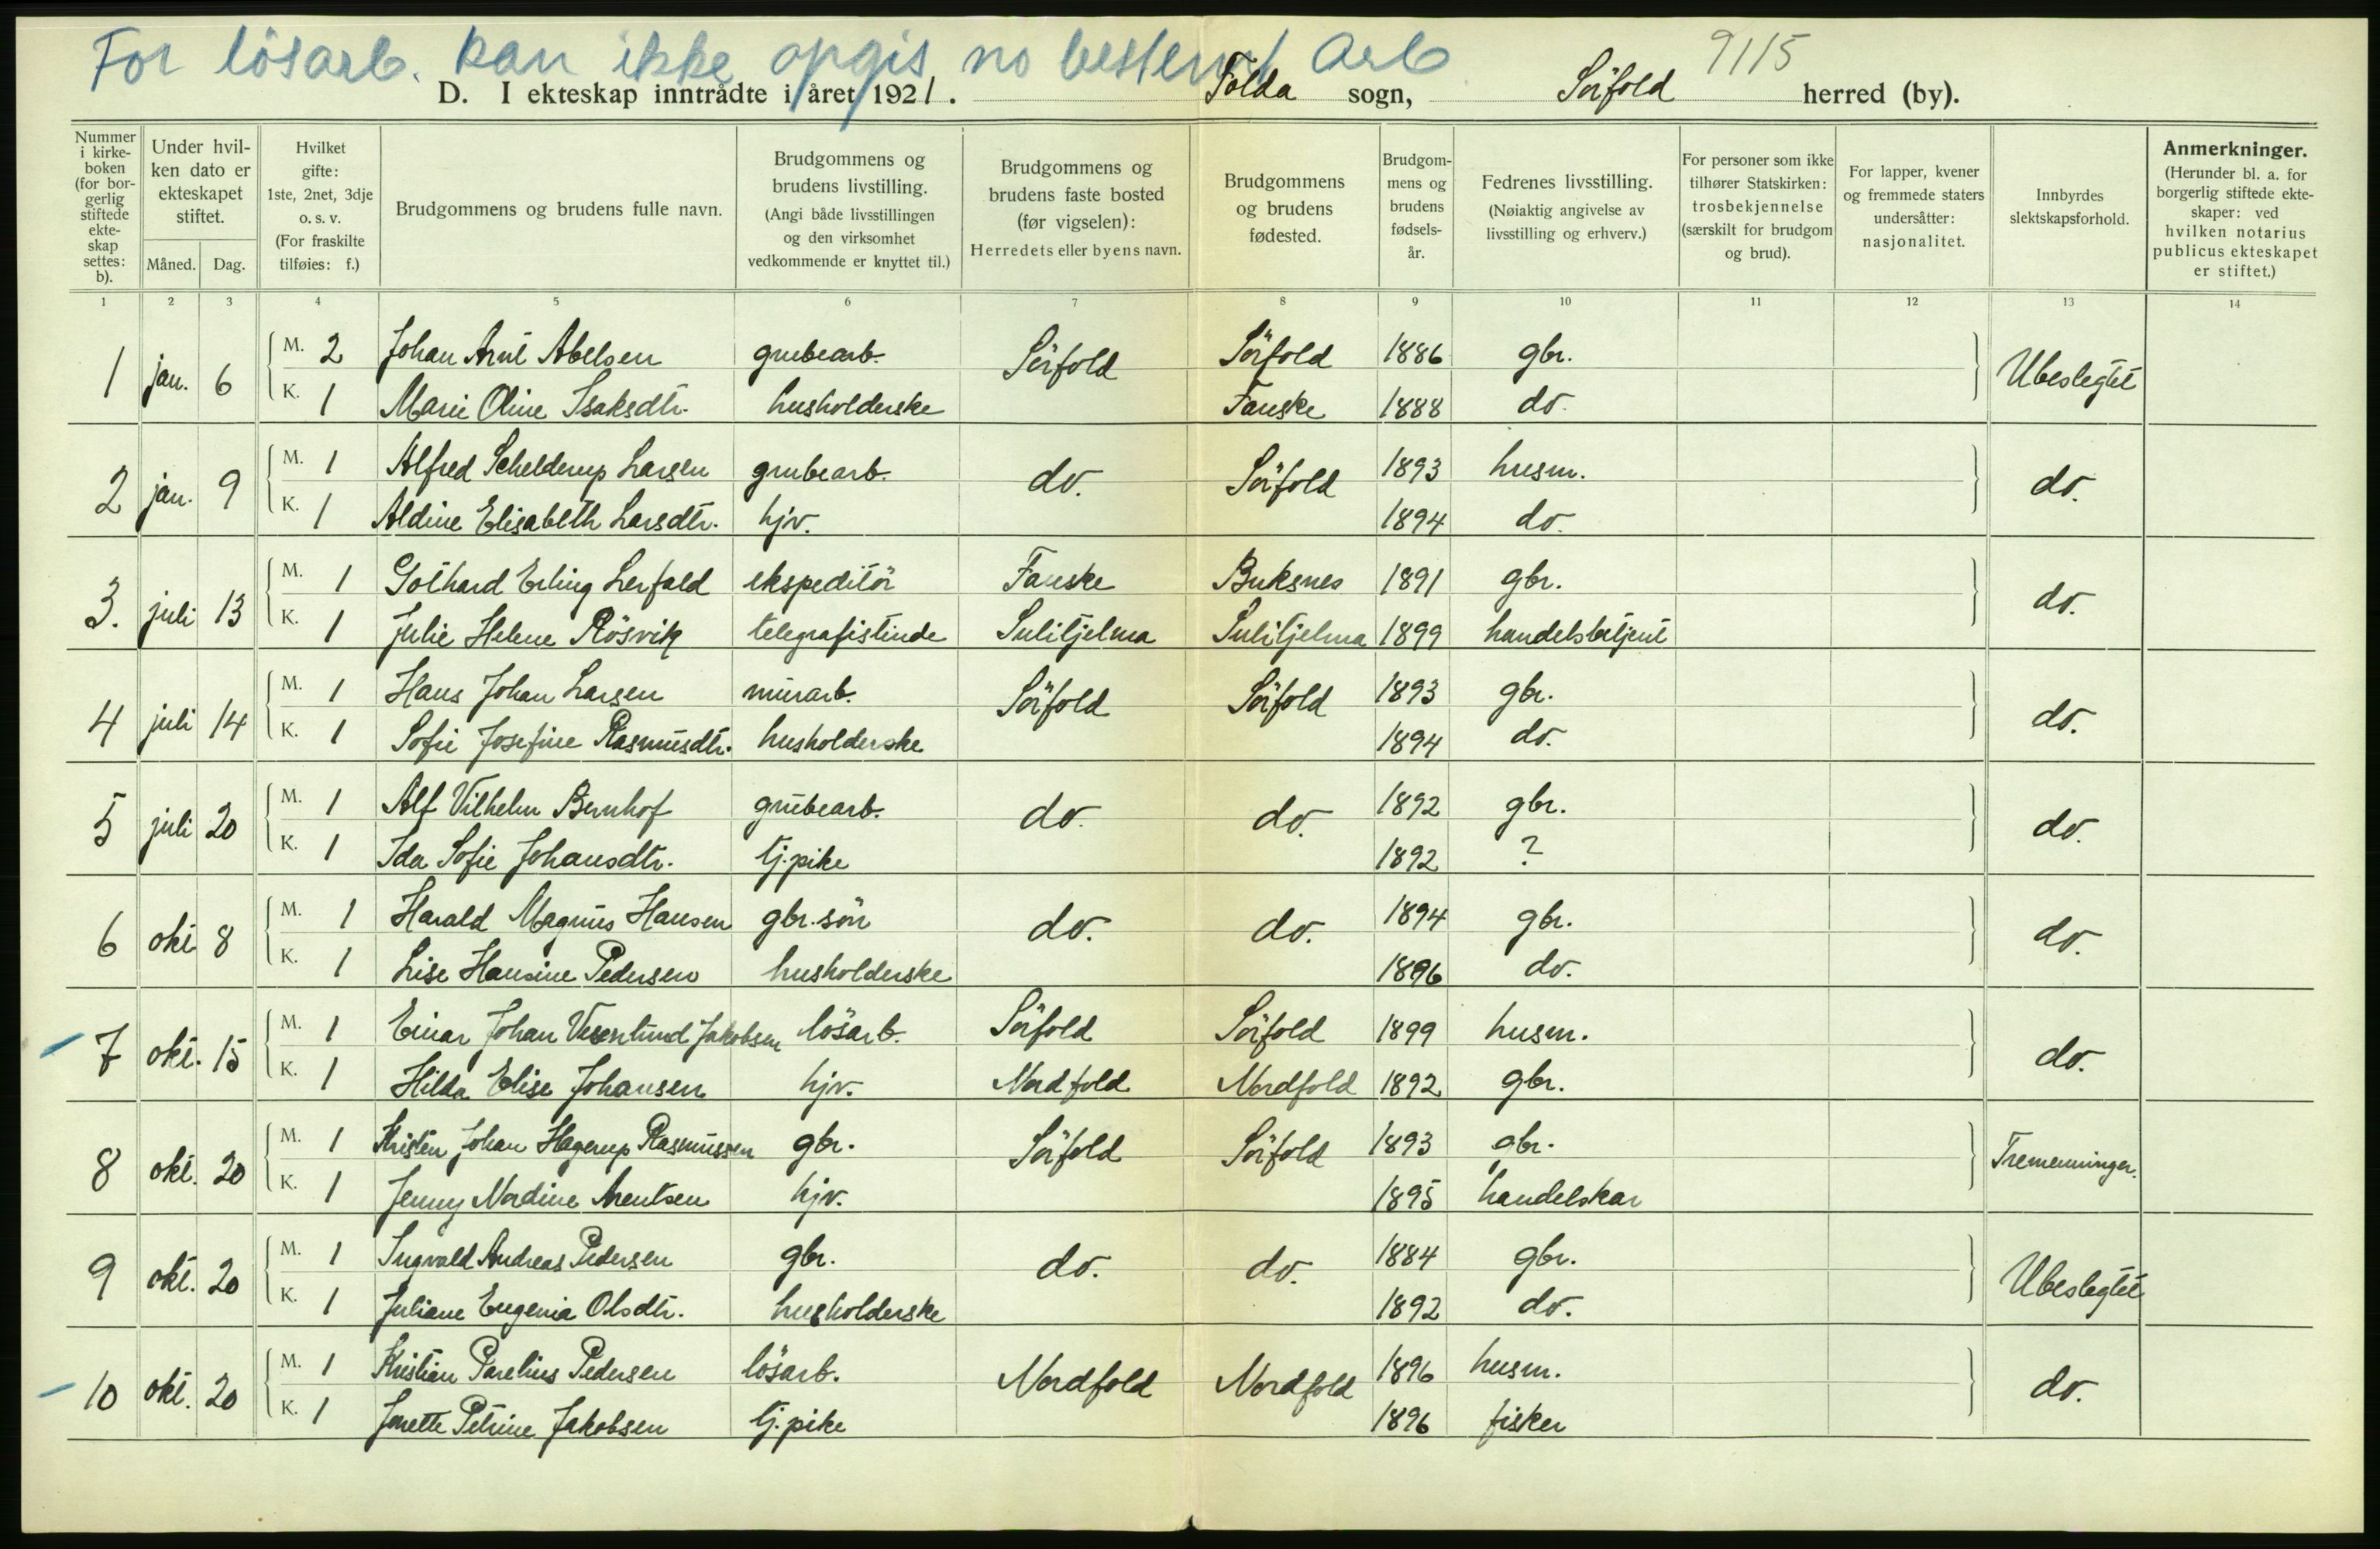 For lösarb. kan ikke opgis no bestemt arb
9115
D. I ekteskap inntrådte i året 1921. Folda sogn, Sörfold herred (by).
Nummer i kirkeboken (for borgerlig stiftede ekteskap settes: b).
Under hvilken dato er ekteskapet stiftet.
Måned. Dag.
Hvilket gifte: 1ste, 2net, 3dje o. s. v. (For fraskilte tilføies: f.)
Brudgommens og brudens fulle navn.
Brudgommens og brudens livstilling. (Angi både livsstillingen og den virksomhet vedkommende er knyttet til.)
Brudgommens og brudens faste bosted (før vigselen): Herredets eller byens navn.
Brudgommens og brudens fødested.
Brudgommens og brudens fødselsår.
Fedrenes livsstilling. (Nøiaktig angivelse av livsstilling og erhverv.)
For personer som ikke tilhører Statskirken: trosbekjennelse (særskilt for brudgom og brud).
For lapper, kvener og fremmede staters undersåtter: nasjonalitet.
Innbyrdes slektskapsforhold.
Anmerkninger. (Herunder bl. a. for borgerlig stiftede ekteskaper: ved hvilken notarius publicus ekteskapet er stiftet.)
1 2 3 4 5 6 7 8 9 10 11 12 13 14
1 jan. 6 M. 2 Johan Arnt Abelsen grubearb. Sörfold Sörfold 1886 gbr. Ubeslegtet
K. 1 Marie Oline Isaksdtr. husholderske Fauske 1888 do.
2 jan. 9 M. 1 Alfred Schelderup Larsen grubearb. do. Sörfold 1893 husm. do.
K. 1 Aldine Elisabeth Larsdtr. hjv. 1894 do.
3. juli 13 M. 1 Gothard Erling Lerfald ekspeditör Fauske Buksnes 1891 gbr. do.
K. 1 Julie Helene Rösvik telegrafistinde Sulitjelma Sulitjelma 1899 handelsbetjent
4 juli 14 M. 1 Hans Johan Larsen murarb. Sörfold Sörfold 1893 gbr. do.
K. 1 Sofie Josefine Rasmusdtr. husholderske 1894 do.
5 juli 20 M. 1 Alf Vilhelm Bernhof grubearb. do. do. 1892 gbr. do.
K. 1 Ida Sofie Johansdtr. tj.pike 1892 ?
6 okt 8 M. 1 Harald Magnus Hansen gbr. sön do. do. 1894 gbr. do.
K. 1 Lise Hansine Pedersen husholderske 1896 do.
7 okt. 15 M. 1 Einar Johan Jakobsen lösarb. Sörfold Sörfold 1899 husm. do.
K. 1 Hilda Elise Johansen hjv. Nordfold Nordfold 1892 gbr.
8 okt. 20 M. 1 Kristen Johan Hagerup Rasmussen gbr. Sörfold Sörfold 1893 gbr. Tremenninger.
K. 1 Jenny Nordine Arentsen hjv. 1895 handelskar
9 okt. 20 M. 1 Ingvald Andreas Pedersen gbr. do. do. 1884 gbr. Ubeslegtet
K. 1 Juliane Eugenia Olsdtr. husholderske 1892 do.
10 okt. 20 M. 1 Kristian Parelius Pedersen lösarb. Nordfold Nordfold 1896 husm. do.
K. 1 Jorette Petrine Jakobsen tj.pike 1896 fisker